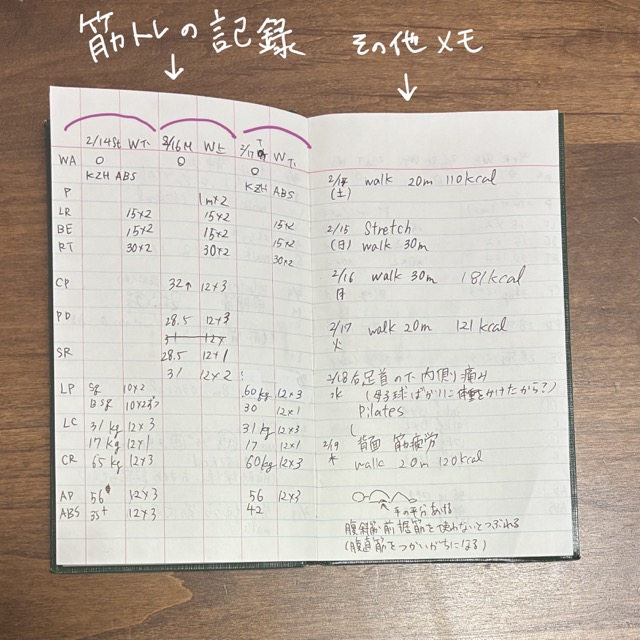 筋トレの記録
その他メモ
2/14St W下 2/16M W上 2/17 T W下
WA O O O
KZH ABS KZH ABS
P 1m×2
LR 15×2 15×2 15×2
BE 15×2 15×2 15×2
RT 30×2 30×2 30×2
CP 32↑ 12×3
PD 28.5 12×3
31 12×
SR 28.5 12×1
31 12×2
LP Sq 10×2 60kg 12×3
BSq 10×2ずつ 30 12×1
LC 31kg 12×3 31kg 12×3
17kg 12×1 17 12×1
CR 65kg 12×3 60kg 12×3
AP 56 12×3 56 12×3
ABS 35+ 12×3 42
2/14 walk 20m 110kcal
(土)
2/15 Stretch
(日) walk 30m
2/16 walk 30m 181kcal
月
2/17 walk 20m 121kcal
火
2/18 右足首の下内側り痛み
水 (母子球ばかりに体重をかけたから?)
Pilates
2/19 背面 筋疲労
木 walk 20m 120kcal
手の平分あける
腹斜筋・前鋸筋を使わないとつぶれる
(腹直筋をつかいがちになる)